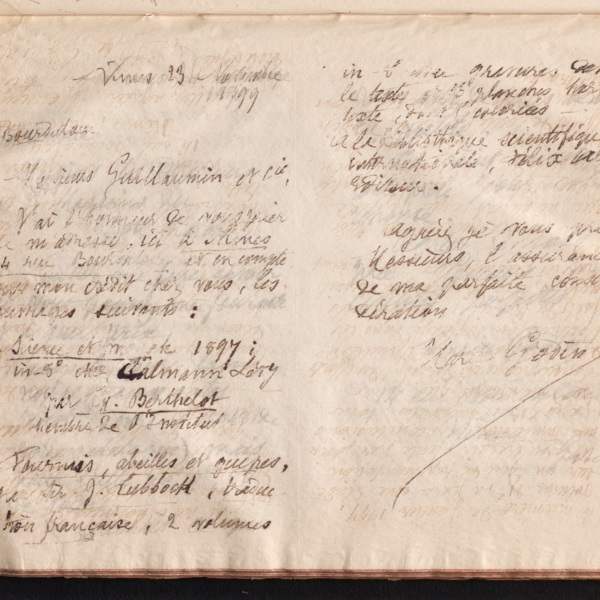 Nîmes 23 Novembre
1899
Bourdaloue
Messieurs Guillaumin et Cie,
J'ai l'honneur de vous prier
de m'adresser, ici à Nîmes
4 rue et en compte
mon crédit chez vous, les
ouvrages suivants :
Science et morale 1897 ;
in-8° chez Calmann Lévy
par M. Berthelot
membre de l'Institut
Fourmis, abeilles et guêpes,
de Sir J. Lubbock, traduc-
tion française, 2 volumes
in-8° avec gravures dans
le texte et 13 planches hors
texte, dont coloriées —
à la bibliothèque scientifique
internationale, Félix
éditeur.
agréez je vous prie
Messieurs, l'assurance
de ma parfaite consi-
dération
Godin